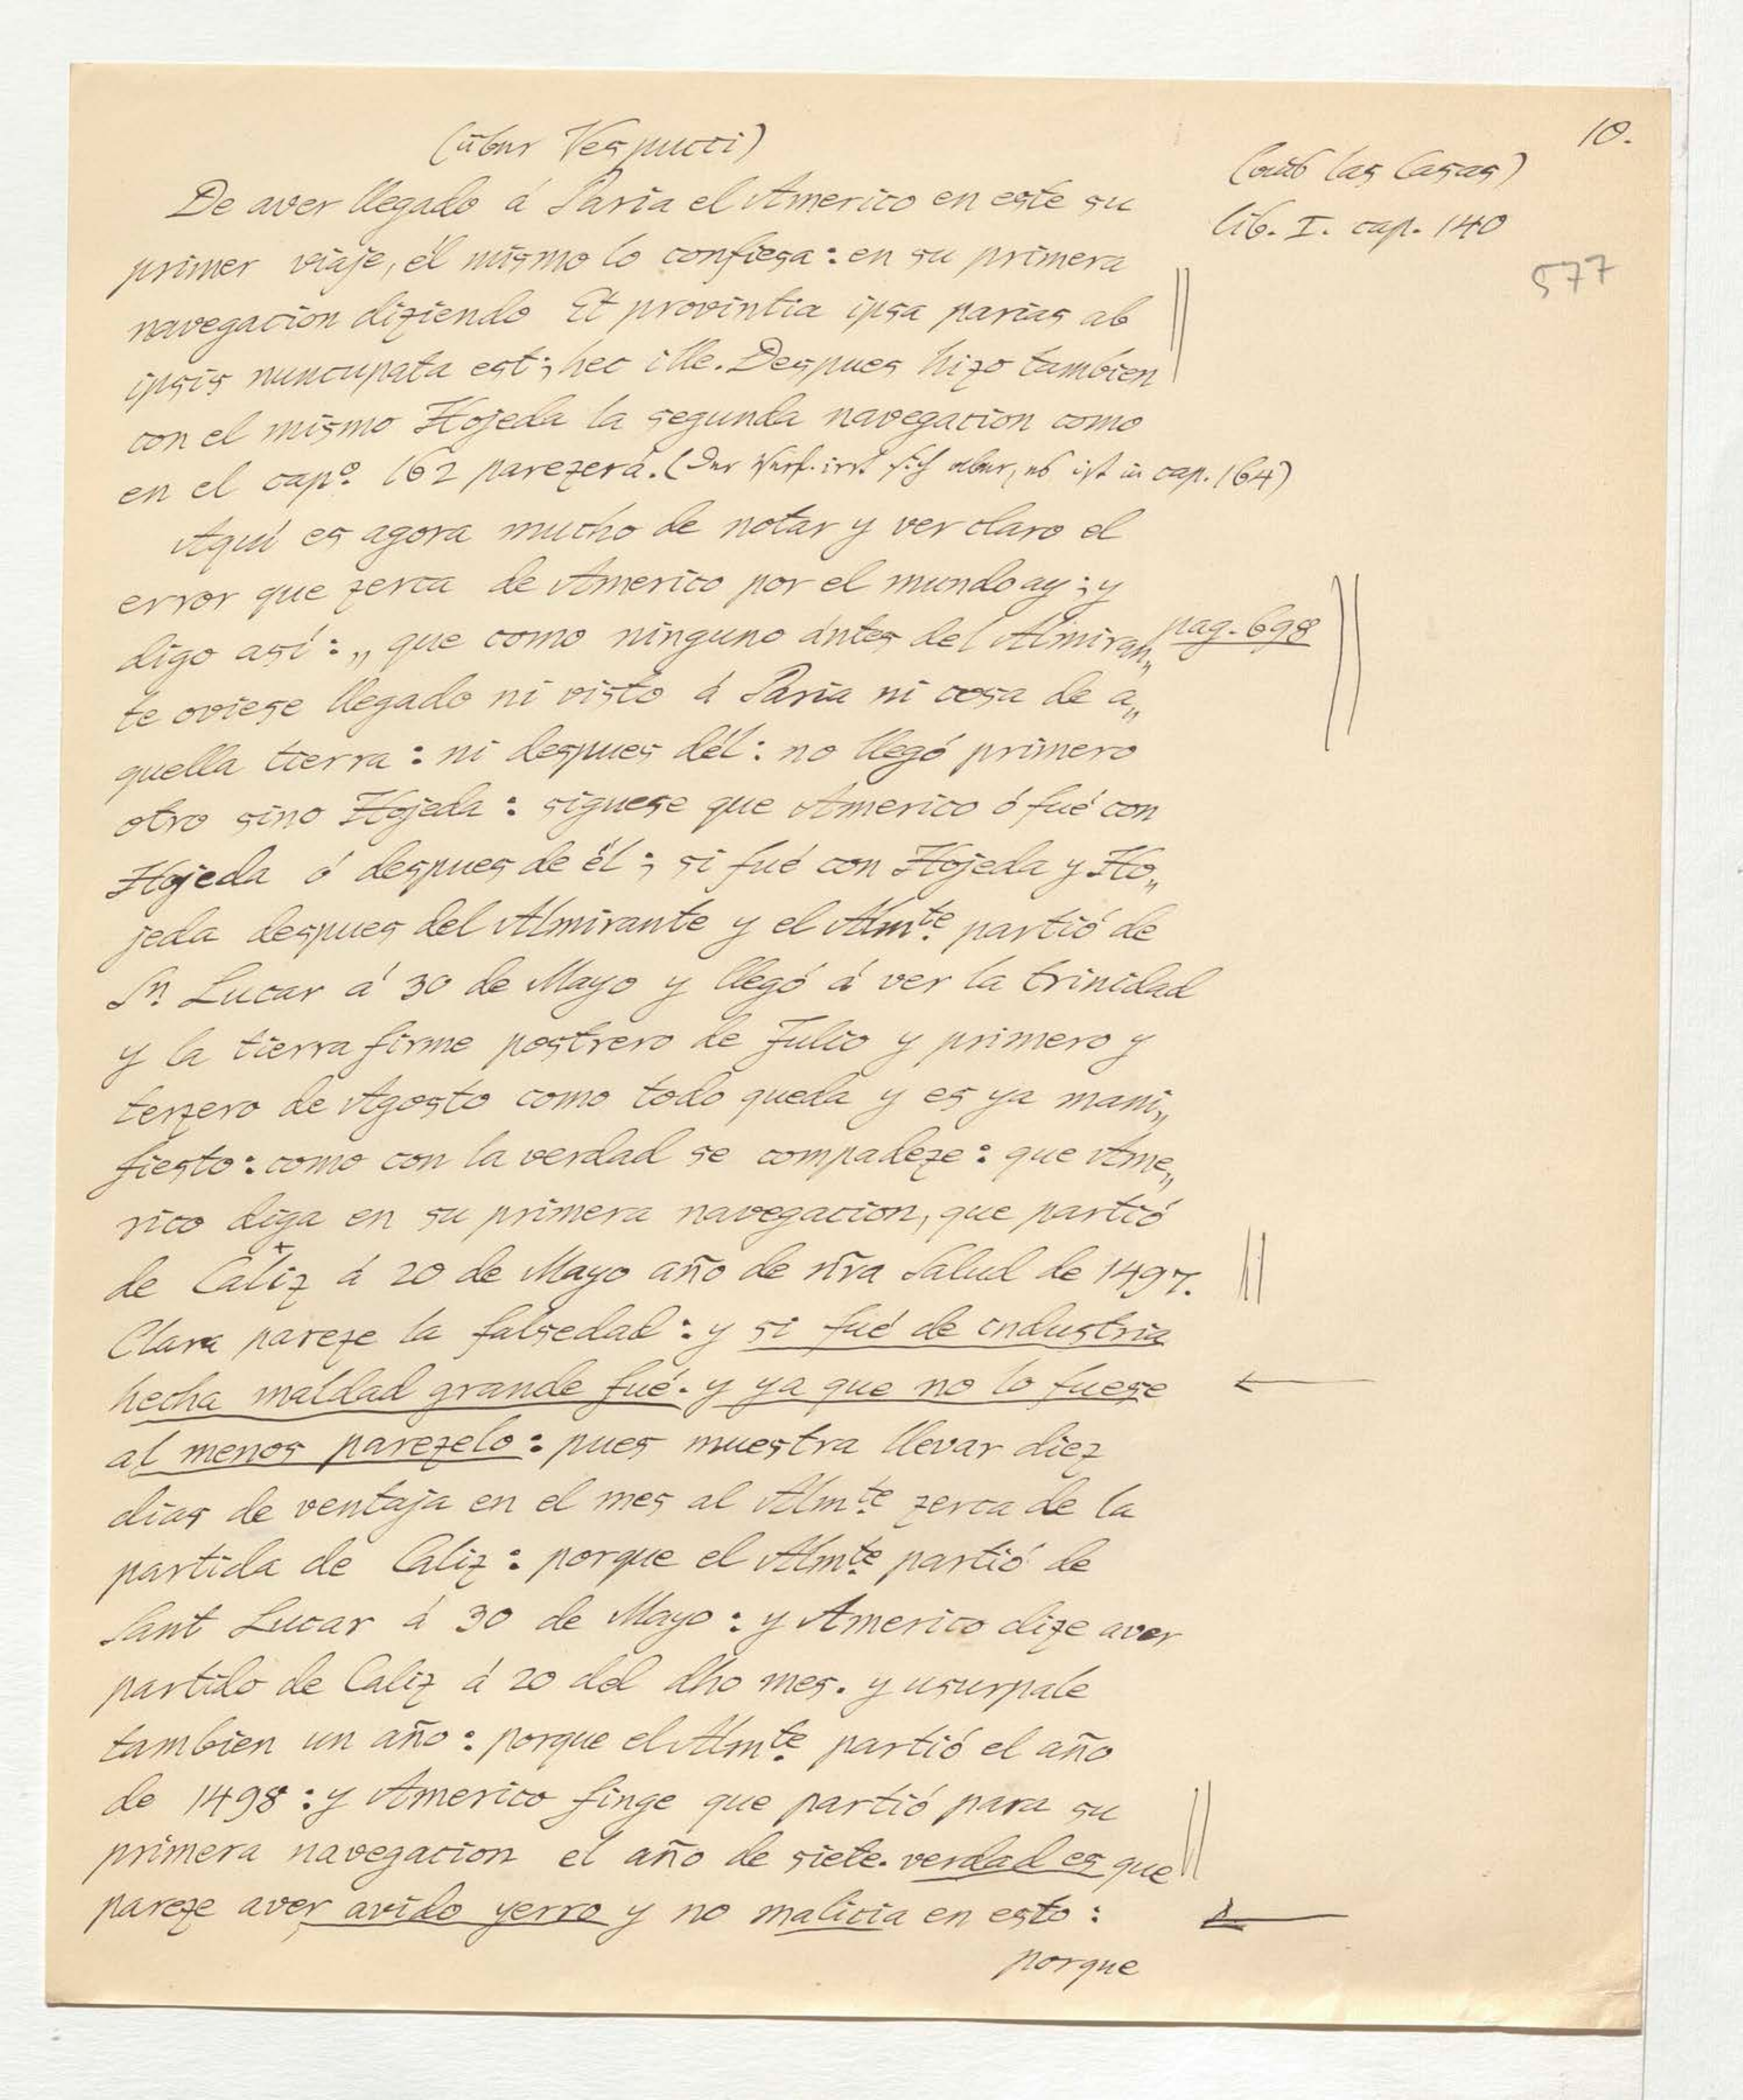 10.
(über Vespucci)
(aus las Casas)
lib. I. cap. 140
577
De aver llegado á Paria el Americo en este su
primer viaje, él mismo lo confiesa: en su primera
navegacion diziendo Et provintia ipsa parias ab
ipsis nuncupata est; hec ille. Despues hizo tambien
con el mismo Hojeda la segunda navegacion como
en el capº. 162 parezerá. (Der Verf. irrt sich aber, es ist in cap. 164)
Aquí es agora mucho de notar y ver claro el
error que zerca de Americo por el mundo ay; y
digo así: „ que como ninguno ántes del Almiran„
pag. 698
te oviese llegado ni visto á Paria ni cosa de a„
quella tierra: ni despues dél: no llegó primero
otro sino Hojeda: siguese que Americo ó fué con
Hojeda ó despues de él; si fué con Hojeda y Ho„
jeda despues del Almirante y el Almte. partió de
Sn. Lucar á 30 de Mayo y llegó á ver la trinidad
y la tierra firme postrero de Julio y primero y
terzero de Agosto como todo queda y es ya mani„
fiesto: como con la verdad se compadeze: que Ame„
rico diga en su primera navegacion, que partió
de Caliz á 20 de Mayo año de nr̃a Salud de 1497.
Clara pareze la falsedad: y si fué de industria
hecha maldad grande fué. y ya que no lo fuese
al menos parezelo: pues muestra llevar diez
dias de ventaja en el mes al Almte. zerca de la
partida de Caliz: porque el Almte. partió de
Sant Lucar á 30 de Mayo: y Americo dize aver
partido de Caliz á 20 del dho mes. y usurpale
tambien un año: porque el Almte. partió el año
de 1498: y Americo finge que partió para su
primera navegacion el año de siete. verdad es que
pareze aver avido yerro y no malicia en esto:
porque